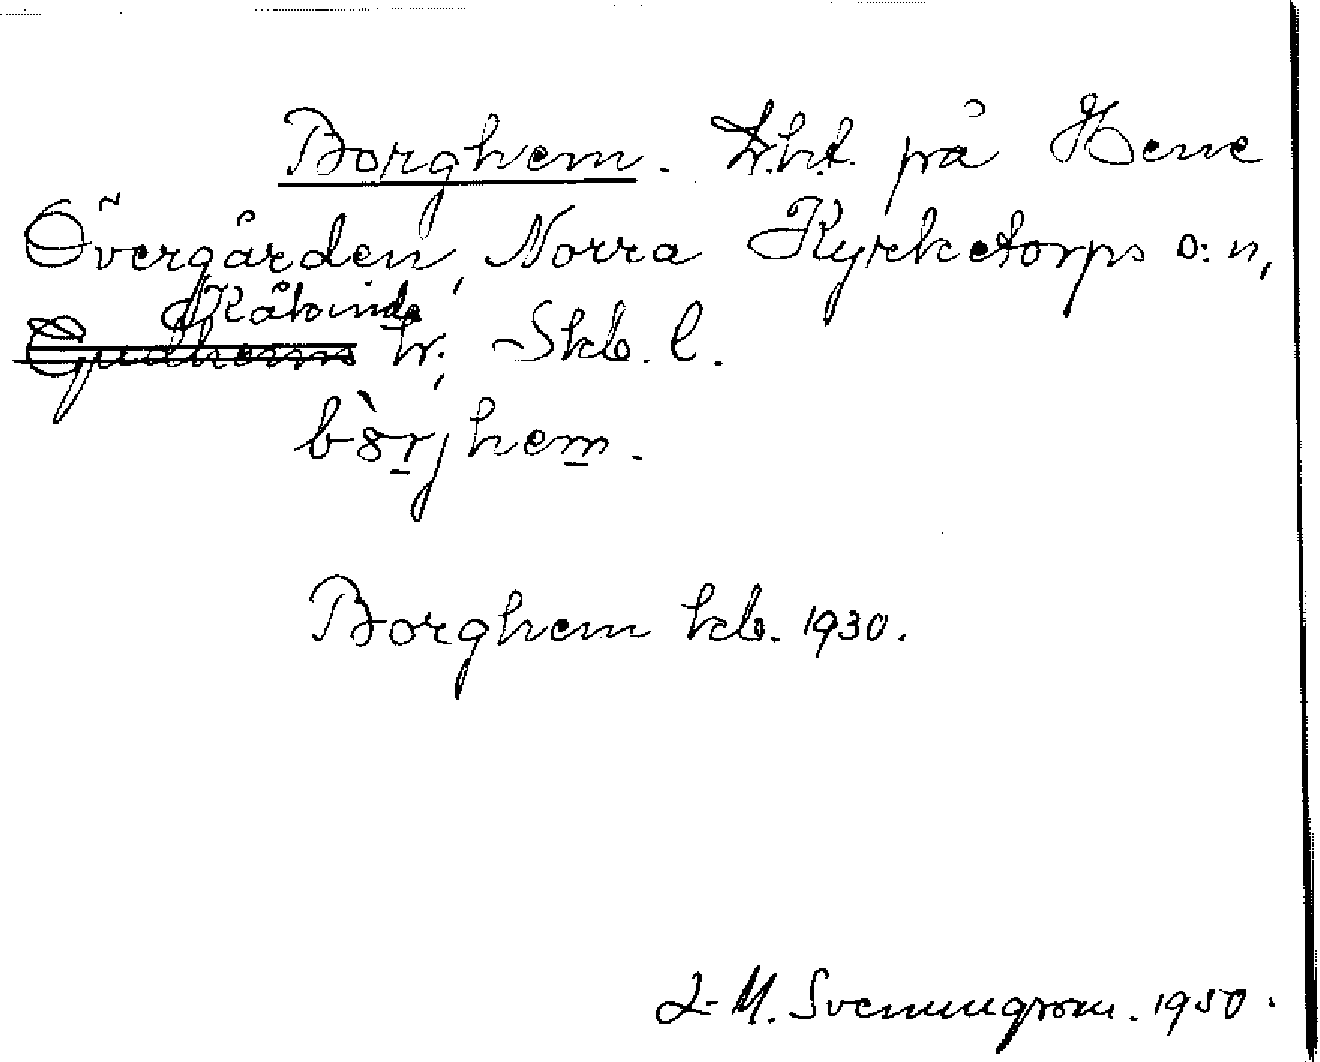 Borghem. Lht. på Hene
Övergården, Norra Kyrketorps s:n,
Kåkinds
Gudhems hr, Skb. l.
bòrjhem.
Borghem kb. 1930.
L-M. Svenungsson. 1950.